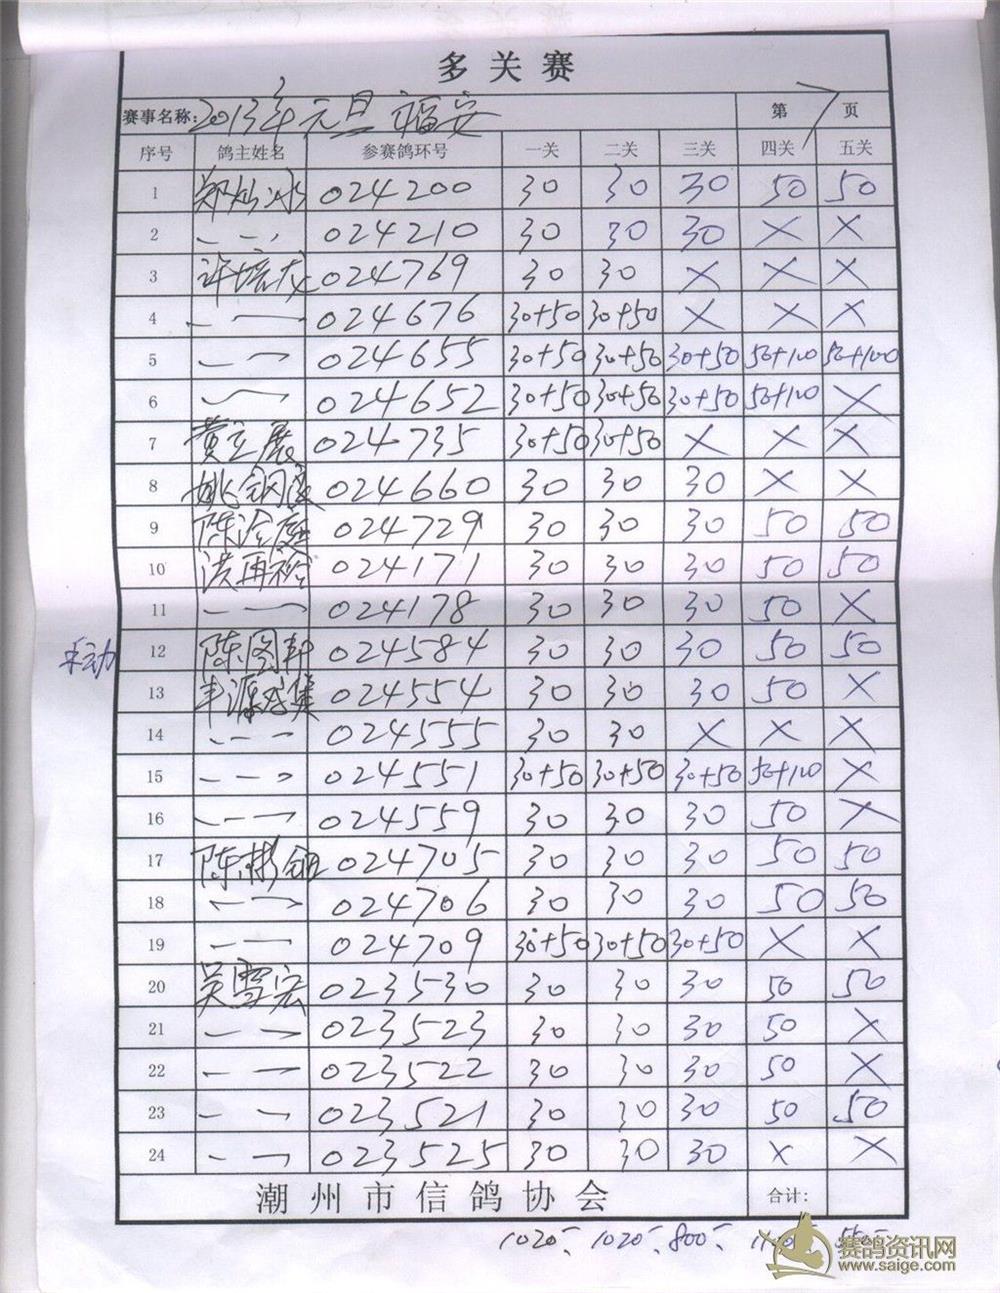 多关赛
赛事名称: 2013年元旦福安 第7页
序号 鸽主姓名 参赛鸽环号 一关 二关 三关 四关 五关
1 郑灿冰 024200 30 30 30 50 50
2 — — 024210 30 30 30 × ×
3 许培龙 024769 30 30 × × ×
4 — — 024676 30+50 30+50 × × ×
5 — — 024655 30+50 30+50 30+50 50+100 50+100
6 — — 024652 30+50 30+50 30+50 50+100 ×
7 黄立展 024735 30+50 30+50 × × ×
8 姚钢 024660 30 30 30 × ×
9 陈 024729 30 30 30 50 50
10 洪再裕 024171 30 30 30 50 50
11 — — 024178 30 30 30 50 ×
12 陈图 024584 30 30 30 50 50
13 丰源 024554 30 30 30 50 ×
14 — — — 024555 30 30 × × ×
15 — — — 024551 30+50 30+50 30+50 50+100 ×
16 — — — 024559 30 30 30 50 ×
17 陈彬 024705 30 30 30 50 50
18 — — 024706 30 30 30 50 50
19 — — 024709 30+50 30+50 30+50 × ×
20 吴雪宏 023530 30 30 30 50 50
21 — — 023523 30 30 30 50 ×
22 — — 023522 30 30 30 50 ×
23 — — 023521 30 30 30 50 50
24 — — 023525 30 30 30 × ×
潮州市信鸽协会 合计:
1020 1020 800
赛鸽资讯网
www.saige.com